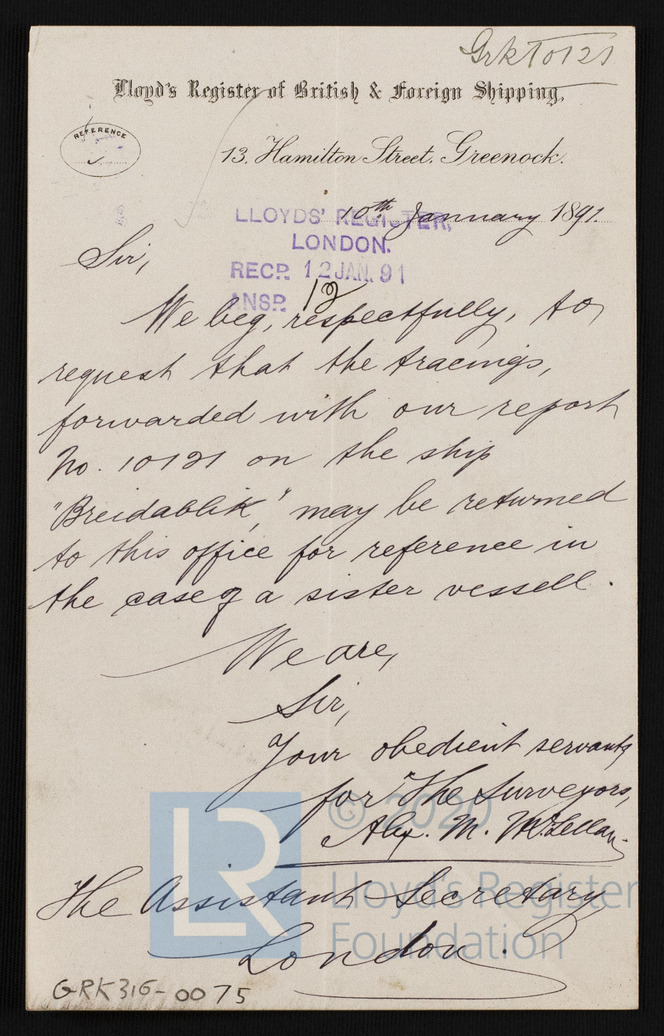 Grk 10121
Lloyd's Register of British & Foreign Shipping,
REFERENCE
13, Hamilton Street, Greenock.
10th January 1891.
LLOYDS' REGISTER,
LONDON.
RECD. 12 JAN. 91
ANSD. 12
Sir,
We beg, respectfully, to
request that the tracings,
forwarded with our report
No. 10121 on the ship
"Breidablik," may be returned
to this office for reference in
the case of a sister vessell.
We are,
Sir,
Your obedient servants
for "The Surveyors,
Alex. M. McLellan.
The Assistant Secretary
London.
© 2020
LR
Lloyd's Register
Foundation
GRK316-0075